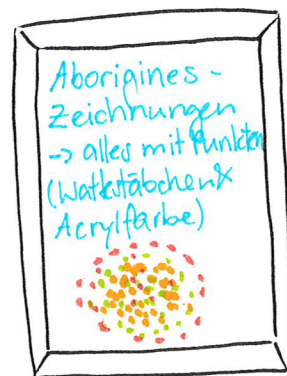 Aborigines-
Zeichnungen
-> alles mit Punkten
(Wattestäbchen &
Acrylfarbe)